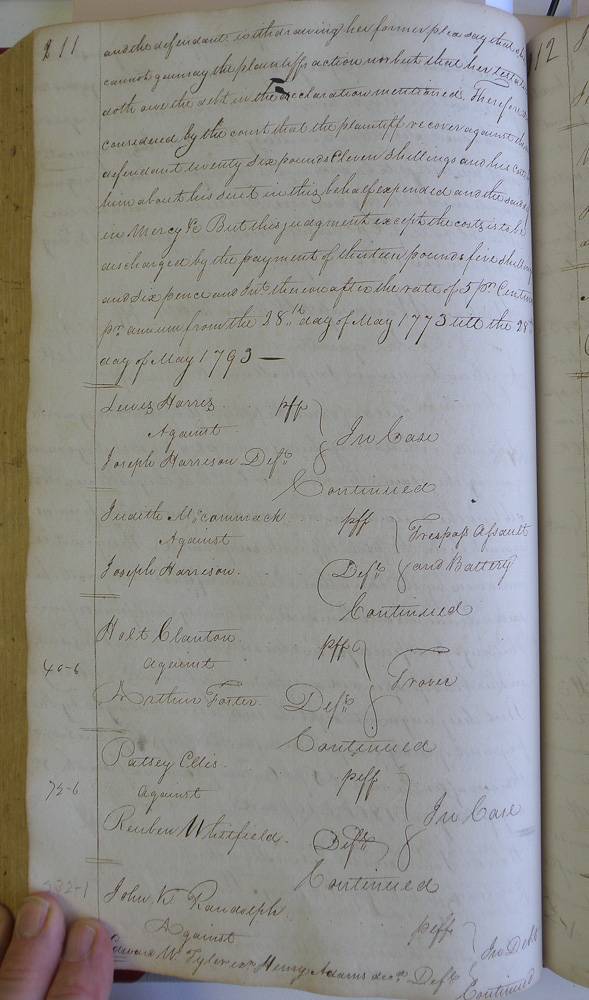 211
and the defendant withdrawing her former plea say that she
cannot gainsay the plaintiffs action nor but that her Testator
doth owe the debt in the declaration mentioned. Therefore
considered by the court that the plaintiff recover against the
defendant twenty Six pounds Eleven Shillings and his costs
him about his suit in this behalf expended and the said
in Mercy &c But this judgment except the costs is to be
discharged by the payment of thirteen pounds five Shillings
and Six pence and Int. thereon after the rate of 5 pr Centum
pr. annum from the 28th day of May 1773 till the 28th
day of May 1793 —
Lewis Harris plff
Against
Joseph Harrison Deft.
In Case
Continued
Judith McCommack plff
Against
Joseph Harrison. Deft.
Trespass Assault
and Battery
Continued
Holt Clanton plff
40-6
Against
Arthur Foster. Deft.
Trover
Continued
Patsey Ellis. plff
72-6
Against
Reuben Whitfield. Deft.
In Case
Continued
232-1
John K Randolph plff
Against
Edward W Tyler exr Henry Adams decd. Deft.
In Debt
Continued
12